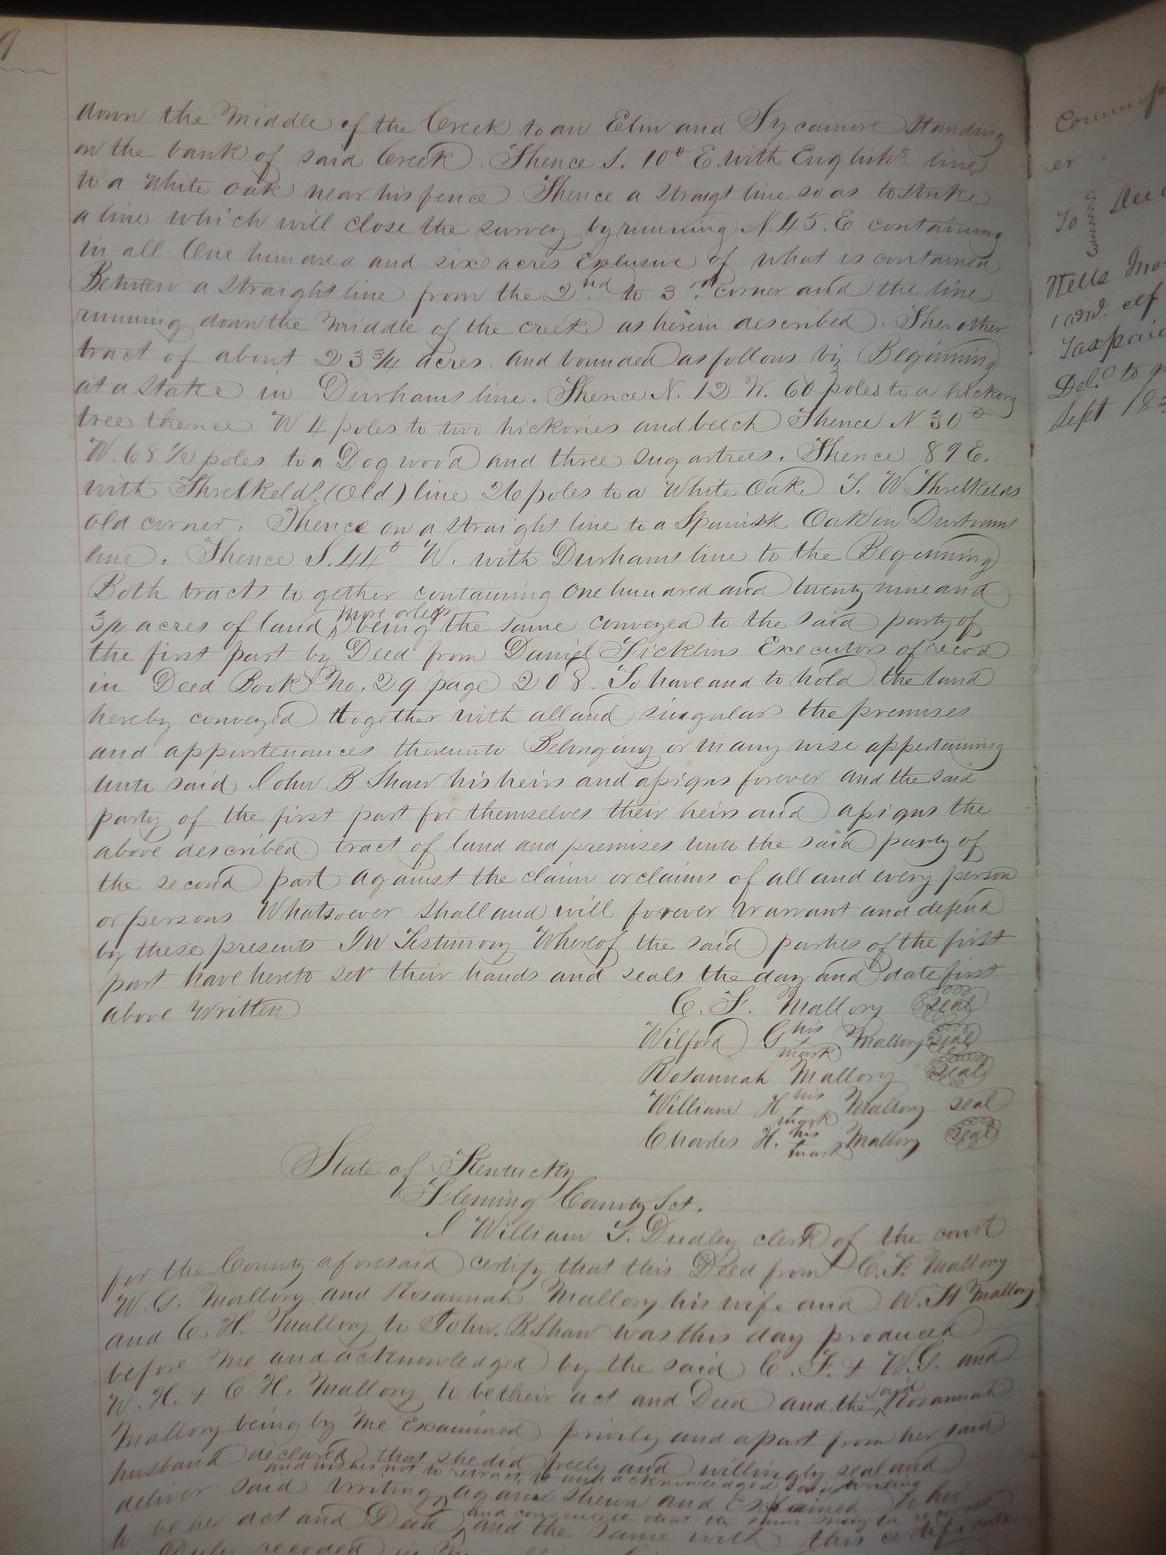 down the Middle of the Creek to an Elm and Sycamore Standing
on the bank of said Creek. Thence S. 10° E with English's line
to a White oak near his fence Thence a straigt line so as to strike
a line which will close the survey by running N. 45. E containing
in all One hundred and six acres Exclusive of what is contained
Between a straight line from the 2nd to 3rd corner and the line
running down the middle of the creek as herein described. The other
tract of about 23 3/4 acres. and bounded as follows viz Beginning
at a Stake in Durhams line. Thence N. 12 W. 60 poles to a hickory
tree thence W 4 poles to two hickories and beech Thence N 30°
W. 68 1/2 poles to a Dogwood and three sugartrees. Thence 89 E.
with Threlkelds (Old) line 26 poles to a White Oak. T. W Threlkelds
old corner. Thence on a straight line to a Spanish Oak in Durhams
line. Thence S. 44° W. with Durhams line to the Beginning
Both tracts to gether containing One hundred and twenty nine and
3/4 acres of land more or less being the same conveyed to the said party of
the first part by Deed from Daniel Ficklins Executors of record
in Deed Book No. 29 page 208. To have and to hold the land
hereby conveyed together with all and singular the premises
and appurtenances thereunto Belonging or in any wise appertaining
unto said John B Shaw his heirs and assigns forever and the said
party of the first part for themselves their heirs and assigns the
above described tract of land and premises unto the said party of
the second part against the claim or claims of all and every person
or persons Whatsoever shall and will forever warrant and defend
by these presents In Testimony Whereof the said parties of the first
part have hereto set their hands and seals the day and date first
above Written
C. F. Mallory seal
Wilford G his mark Mallory seal
Rosannah Mallory seal
William H his mark Mallory seal
Charles H. his mark Mallory seal
State of Kentucky
Fleming County Sct.
I William T. Dudley clerk of the court
for the County aforesaid certify that this Deed from C. F. Mallory
W. G. Mallory and Rosannah Mallory his wife and W. H Mallory
and C. H. Mallory to John. B. Shaw was this day produced
before Me and acknowledged by the said C. F. & W. G. and
W. H. & C H. Mallory to be their act and Deed and the said Rosannah
Mallory being by Me Examined privily and apart from her said
husband declared that she did freely and willingly seal and
and wishes not to retract it and acknowledged said writing
deliver said writing again shewn and Explained to her
and consented that the same may be recorded
to be her act and Deed and the same with this certificate
Duly recorded in
er
To
Wells
Taxpaid
Sept 18